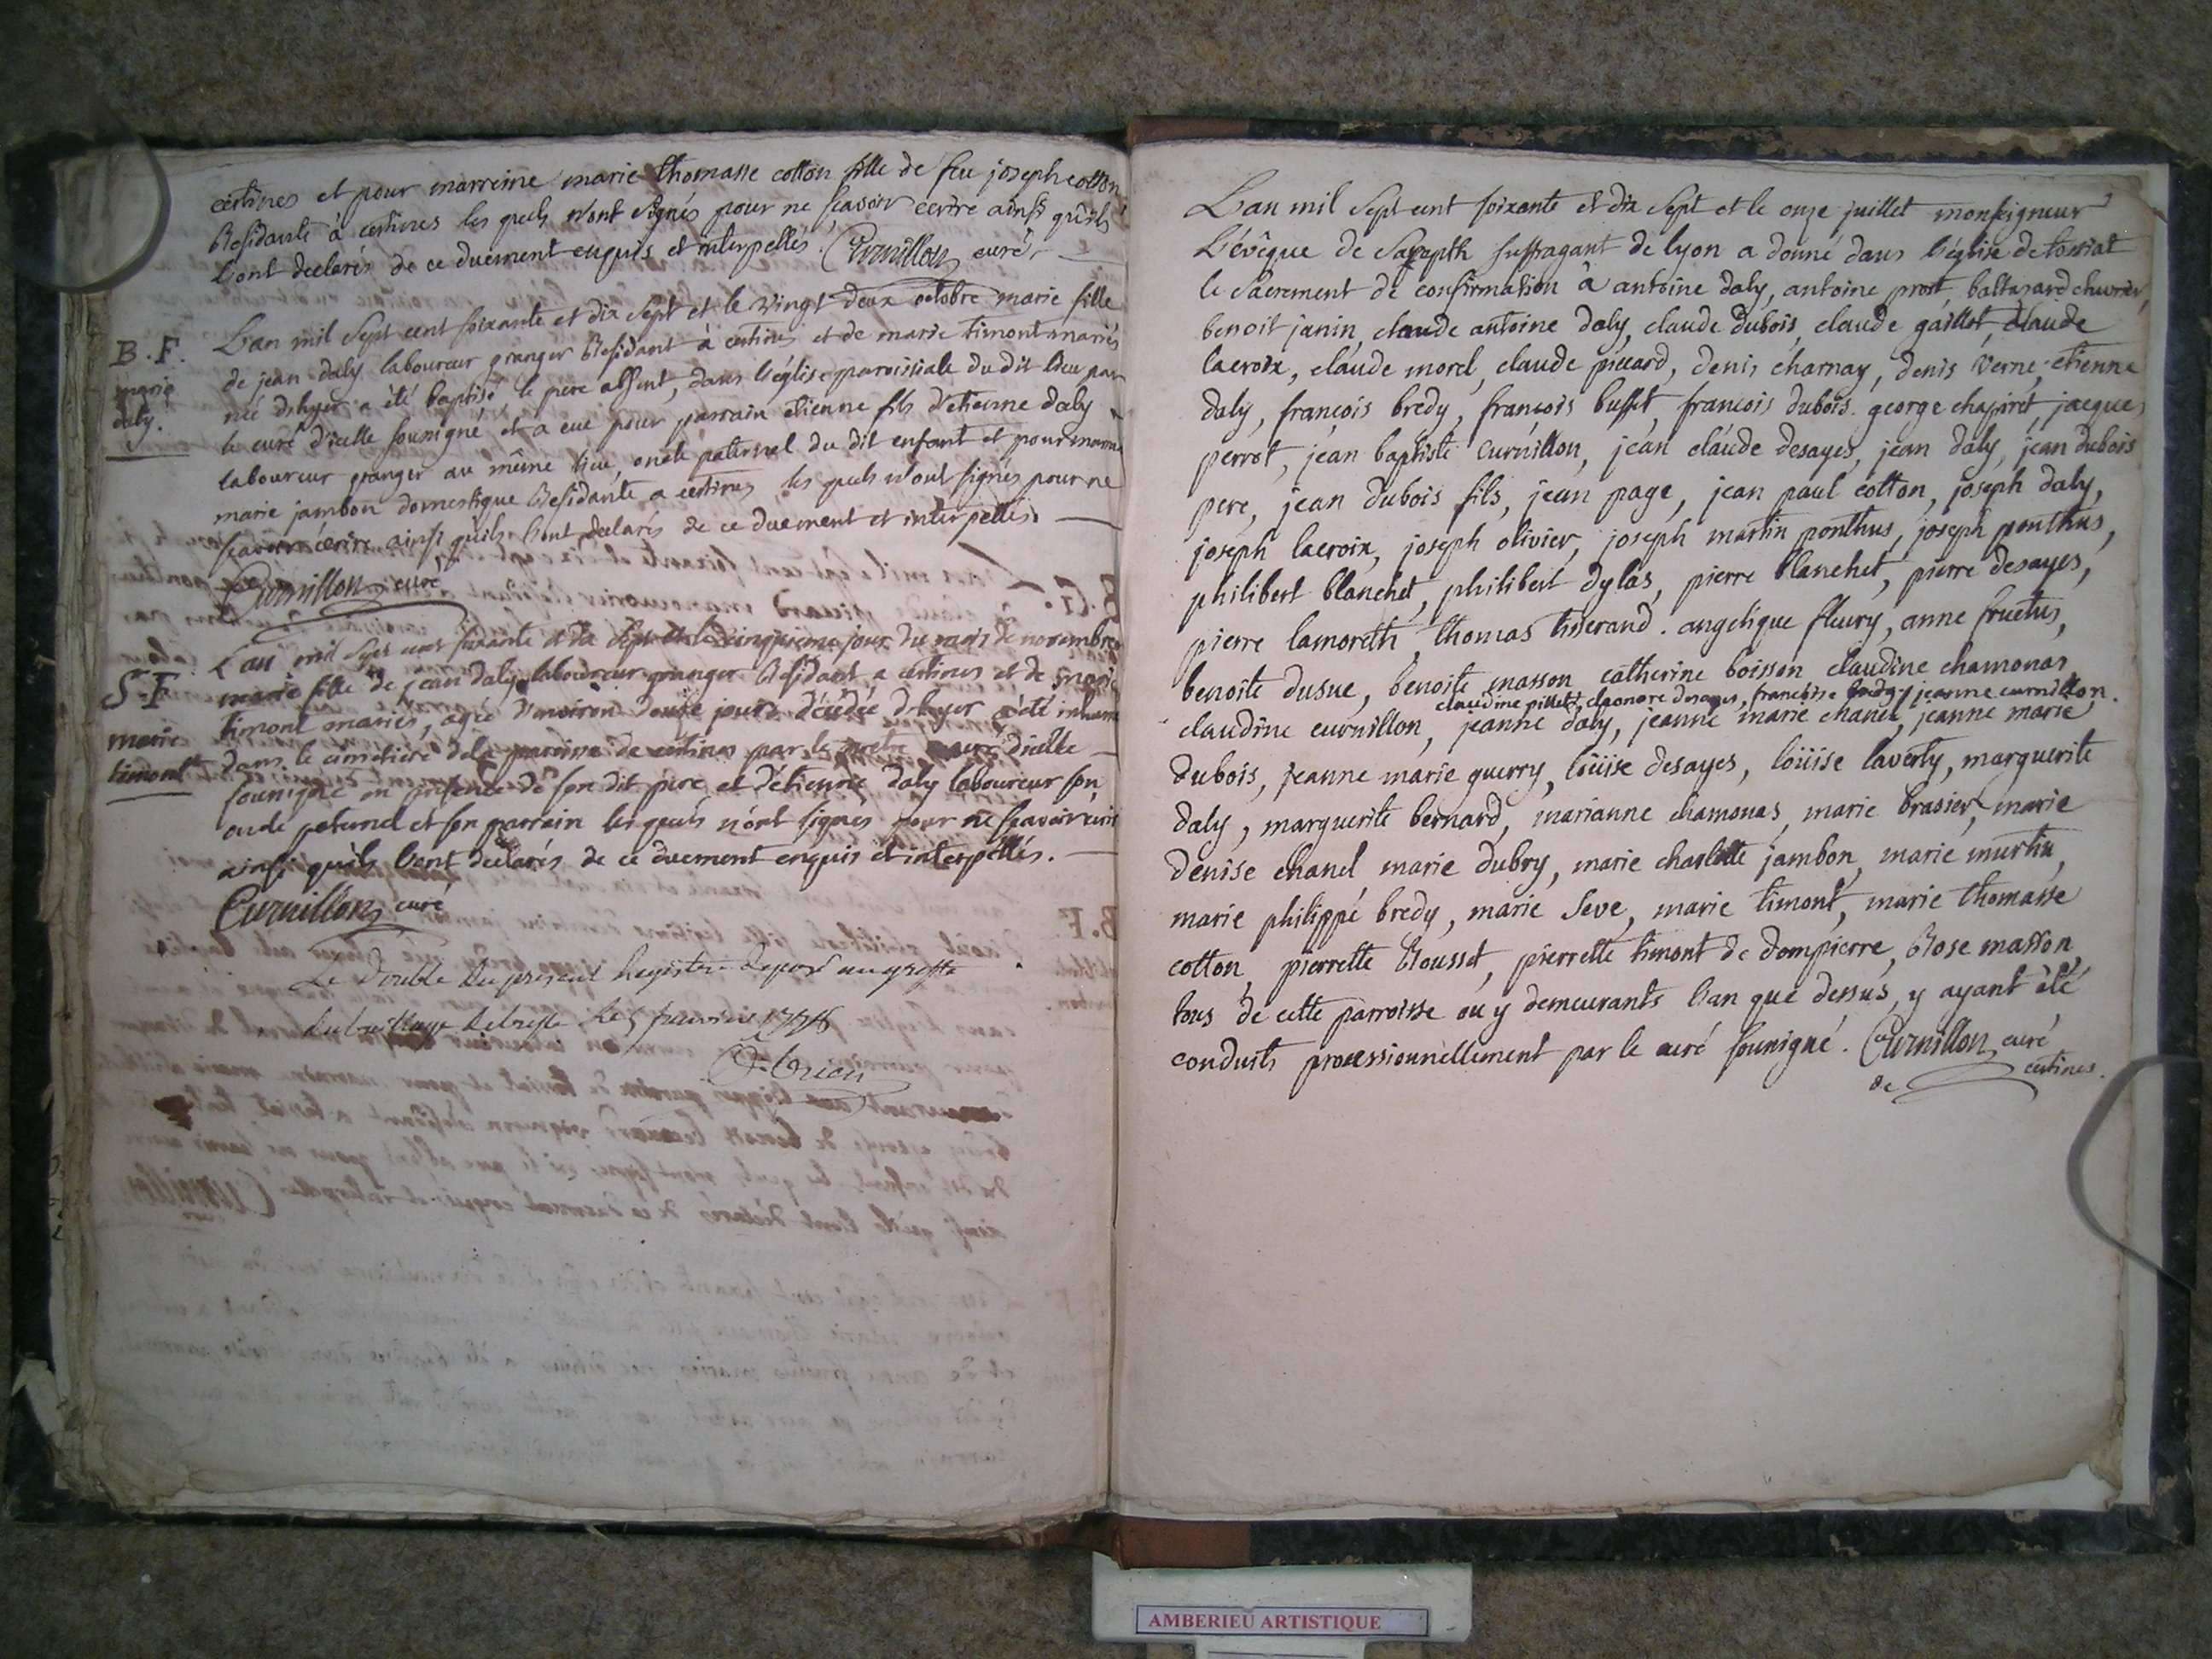 certines et pour marreine marie thomasse cotton fille de feu joseph cotton
Residante à certines les quels n'ont signés pour ne scavoir écrire ainsi qu'ils
l'ont declarés de ce duement enquis et interpellés. Curnillon curé
L'an mil sept cent soixante et dix sept et le vingt deux octobre marie fille
de jean daly laboureur granger Residant à certines et de marie timont mariés
née d'hyer a été baptisé le pere absent, dans l'église paroissiale du dit lieu par
le curé d'icelle sousigné et a eue pour parrain etienne fils d'etienne daly
laboureur granger au même lieu, oncle paternel du dit enfant et pour marraine
marie jambon domestique Residante a certines les quels n'ont signés pour ne
scavoir écrire ainsi qu'ils l'ont declarés de ce duement et interpellés.
Curnillon curé
B. F.
marie
daly.
L'an mil sept cent soixante et dix sept et le cinquieme jour du mois de novembre
marie fille de jean daly laboureur granger Residant a certines et de marie
timont mariés, agée d'environ douze jours décédée d'hyer a été inhumé
dans le cimetiere de la paroisse de certines par le curé d'icelle
sousigné en présence de son dit pere et d'étienne daly laboureur son
oncle paternel et son parrain les quels n'ont signés pour ne scavoir écrire
ainsi qu'ils l'ont declarés de ce duement enquis et interpellés.
Curnillon curé
S. F
marie
timont
Le Double du present Registre deposé au greffe
du bailliage de bresse le 5 1778
L'an mil sept cent soixante et dix sept et le onze juillet monseigneur
L'évêque de Sarepth suffragant de lyon a donné dans l'église de tossiat
le sacrement de confirmation à antoine daly, antoine prost, baltazard chevrier,
benoit janin, claude antoine daly, claude dubois, claude gaillot, claude
lacroix, claude morel, claude piccard, denis charnay, denis verne, etienne
daly, françois bredy, françois buffet, francois dubois. george chapiret, jacques
perrot, jean baptiste curnillon, jean claude desayes, jean daly, jean dubois
pere, jean dubois fils, jean page, jean paul cotton, joseph daly,
joseph lacroix, joseph olivier, joseph martin ponthus, joseph ponthus,
philibert blanchet, philibert dylas, pierre blanchet, pierre desayes,
pierre lamoreth, thomas tisserand. angelique fleury, anne fructus,
benoite dusue, benoite masson catherine boisson claudine chamonas
claudine pillet, eleonore desayes, françoise bredy, jeanne curnillon.
claudine curnillon, jeanne daly, jeanne marie chanel, jeanne marie
dubois, jeanne marie guerry, loüise desayes, loüise laverty, marguerite
daly, marguerite bernard, marianne chamonas, marie brasier, marie
denise chanel marie dubry, marie charlotte jambon, marie murtin,
marie philippé bredy, marie seve, marie timont, marie thomasse
cotton, pierrette Rousset, pierrette timont de dompierre, Rose masson,
tous de cette parroisse ou y demeurants l'an que dessus, y ayant été
conduits processionnellement par le curé sousigné. Curnillon curé
de certines.
AMBERIEU ARTISTIQUE